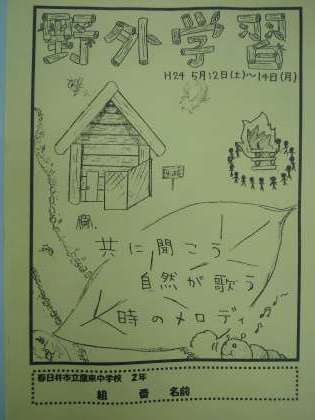 野外学習
H24 5月12日(土)~14日(月)
共に聞こう
自然が歌う
一時のメロディ
春日井市立鷹来中学校 2年
組 番 名前